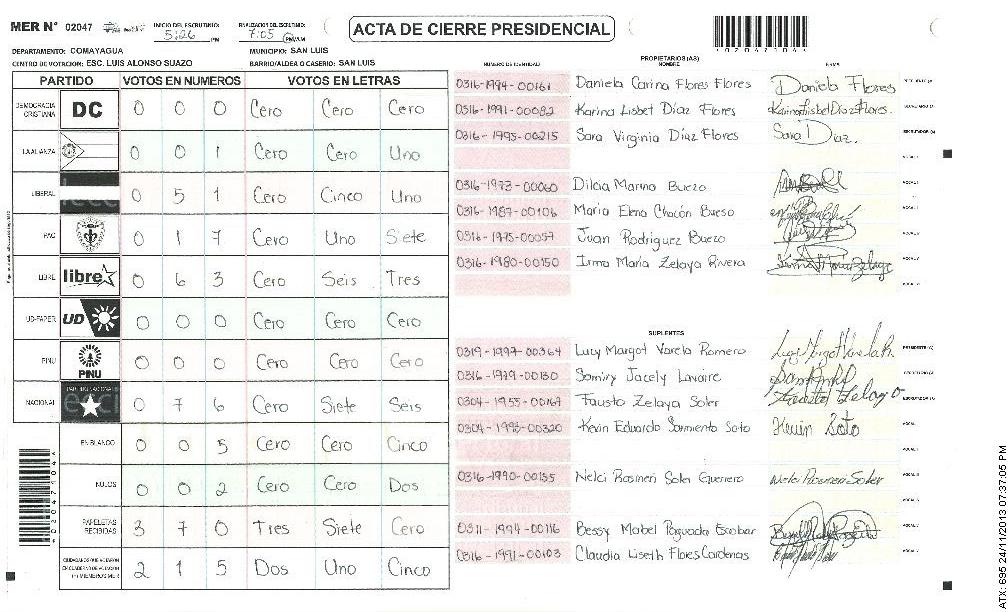 MER N° 02047
INICIO DEL ESCRUTINIO: 5:26 PM
FINALIZACION DEL ESCRUTINIO: 7:05 PM/AM
ACTA DE CIERRE PRESIDENCIAL
DEPARTAMENTO: COMAYAGUA
MUNICIPIO: SAN LUIS
CENTRO DE VOTACION: ESC. LUIS ALONSO SUAZO
BARRIO/ALDEA O CASERIO: SAN LUIS
PARTIDO VOTOS EN NUMEROS VOTOS EN LETRAS
DEMOCRACIA CRISTIANA DC 0 0 0 Cero Cero Cero
LA ALIANZA 0 0 1 Cero Cero Uno
LIBERAL 0 5 1 Cero Cinco Uno
PAC 0 1 7 Cero Uno Siete
LIBRE libre 0 6 3 Cero Seis Tres
UD-FAPER UD 0 0 0 Cero Cero Cero
PINU PINU 0 0 0 Cero Cero Cero
NACIONAL 0 7 6 Cero Siete Seis
EN BLANCO 0 0 5 Cero Cero Cinco
NULOS 0 0 2 Cero Cero Dos
PAPELETAS RECIBIDAS 3 7 0 Tres Siete Cero
2 1 5 Dos Uno Cinco
PROPIETARIOS (AS)
NUMERO DE IDENTIDAD NOMBRE FIRMA
0316-1994-00161 Daniela Carina Flores Flores Daniela Flores
0316-1991-00082 Karina Lisbet Díaz Flores Karina Lisbet Díaz Flores.
0316-1995-00215 Sara Virginia Díaz Flores Sara Díaz.
0316-1973-00060 Dilcia Marina Buezo
0316-1987-00106 Maria Elena Chacón Bueso
0316-1975-00057 Juan Rodriguez Buezo
0316-1980-00150 Irma María Zelaya Rivera
SUPLENTES
0319-1997-00364 Lucy Margot Varela Romero
0316-1979-00130 Samiry Jacely Lavaire
0304-1955-00167 Fausto Zelaya Soler
0304-1995-00320 Kevin Eduardo Sarmiento Soto Kevin Soto
0316-1990-00155 Nelci Rosmeri Soler Guerrero Nelci Rosmeri Soler
0311-1994-00116 Bessy Mabel Poguada Escobar
0316-1991-00103 Claudia Liseth Flores Cardenas
ATX: 695 24/11/2013 07:37:05 PM